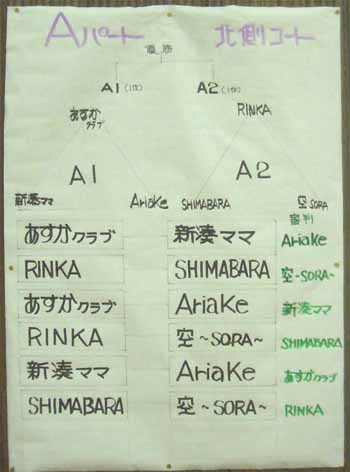 Aパート 北側コート
優勝
A1(1位) A2(1位)
あすかクラブ RINKA
A1 A2
新湊ママ Ariake SHIMABARA 空SORA
審判
あすかクラブ 新湊ママ Ariake
RINKA SHIMABARA 空-SORA-
あすかクラブ Ariake 新湊ママ
RINKA 空~SORA~ SHIMABARA
新湊ママ Ariake あすかクラブ
SHIMABARA 空~SORA~ RINKA